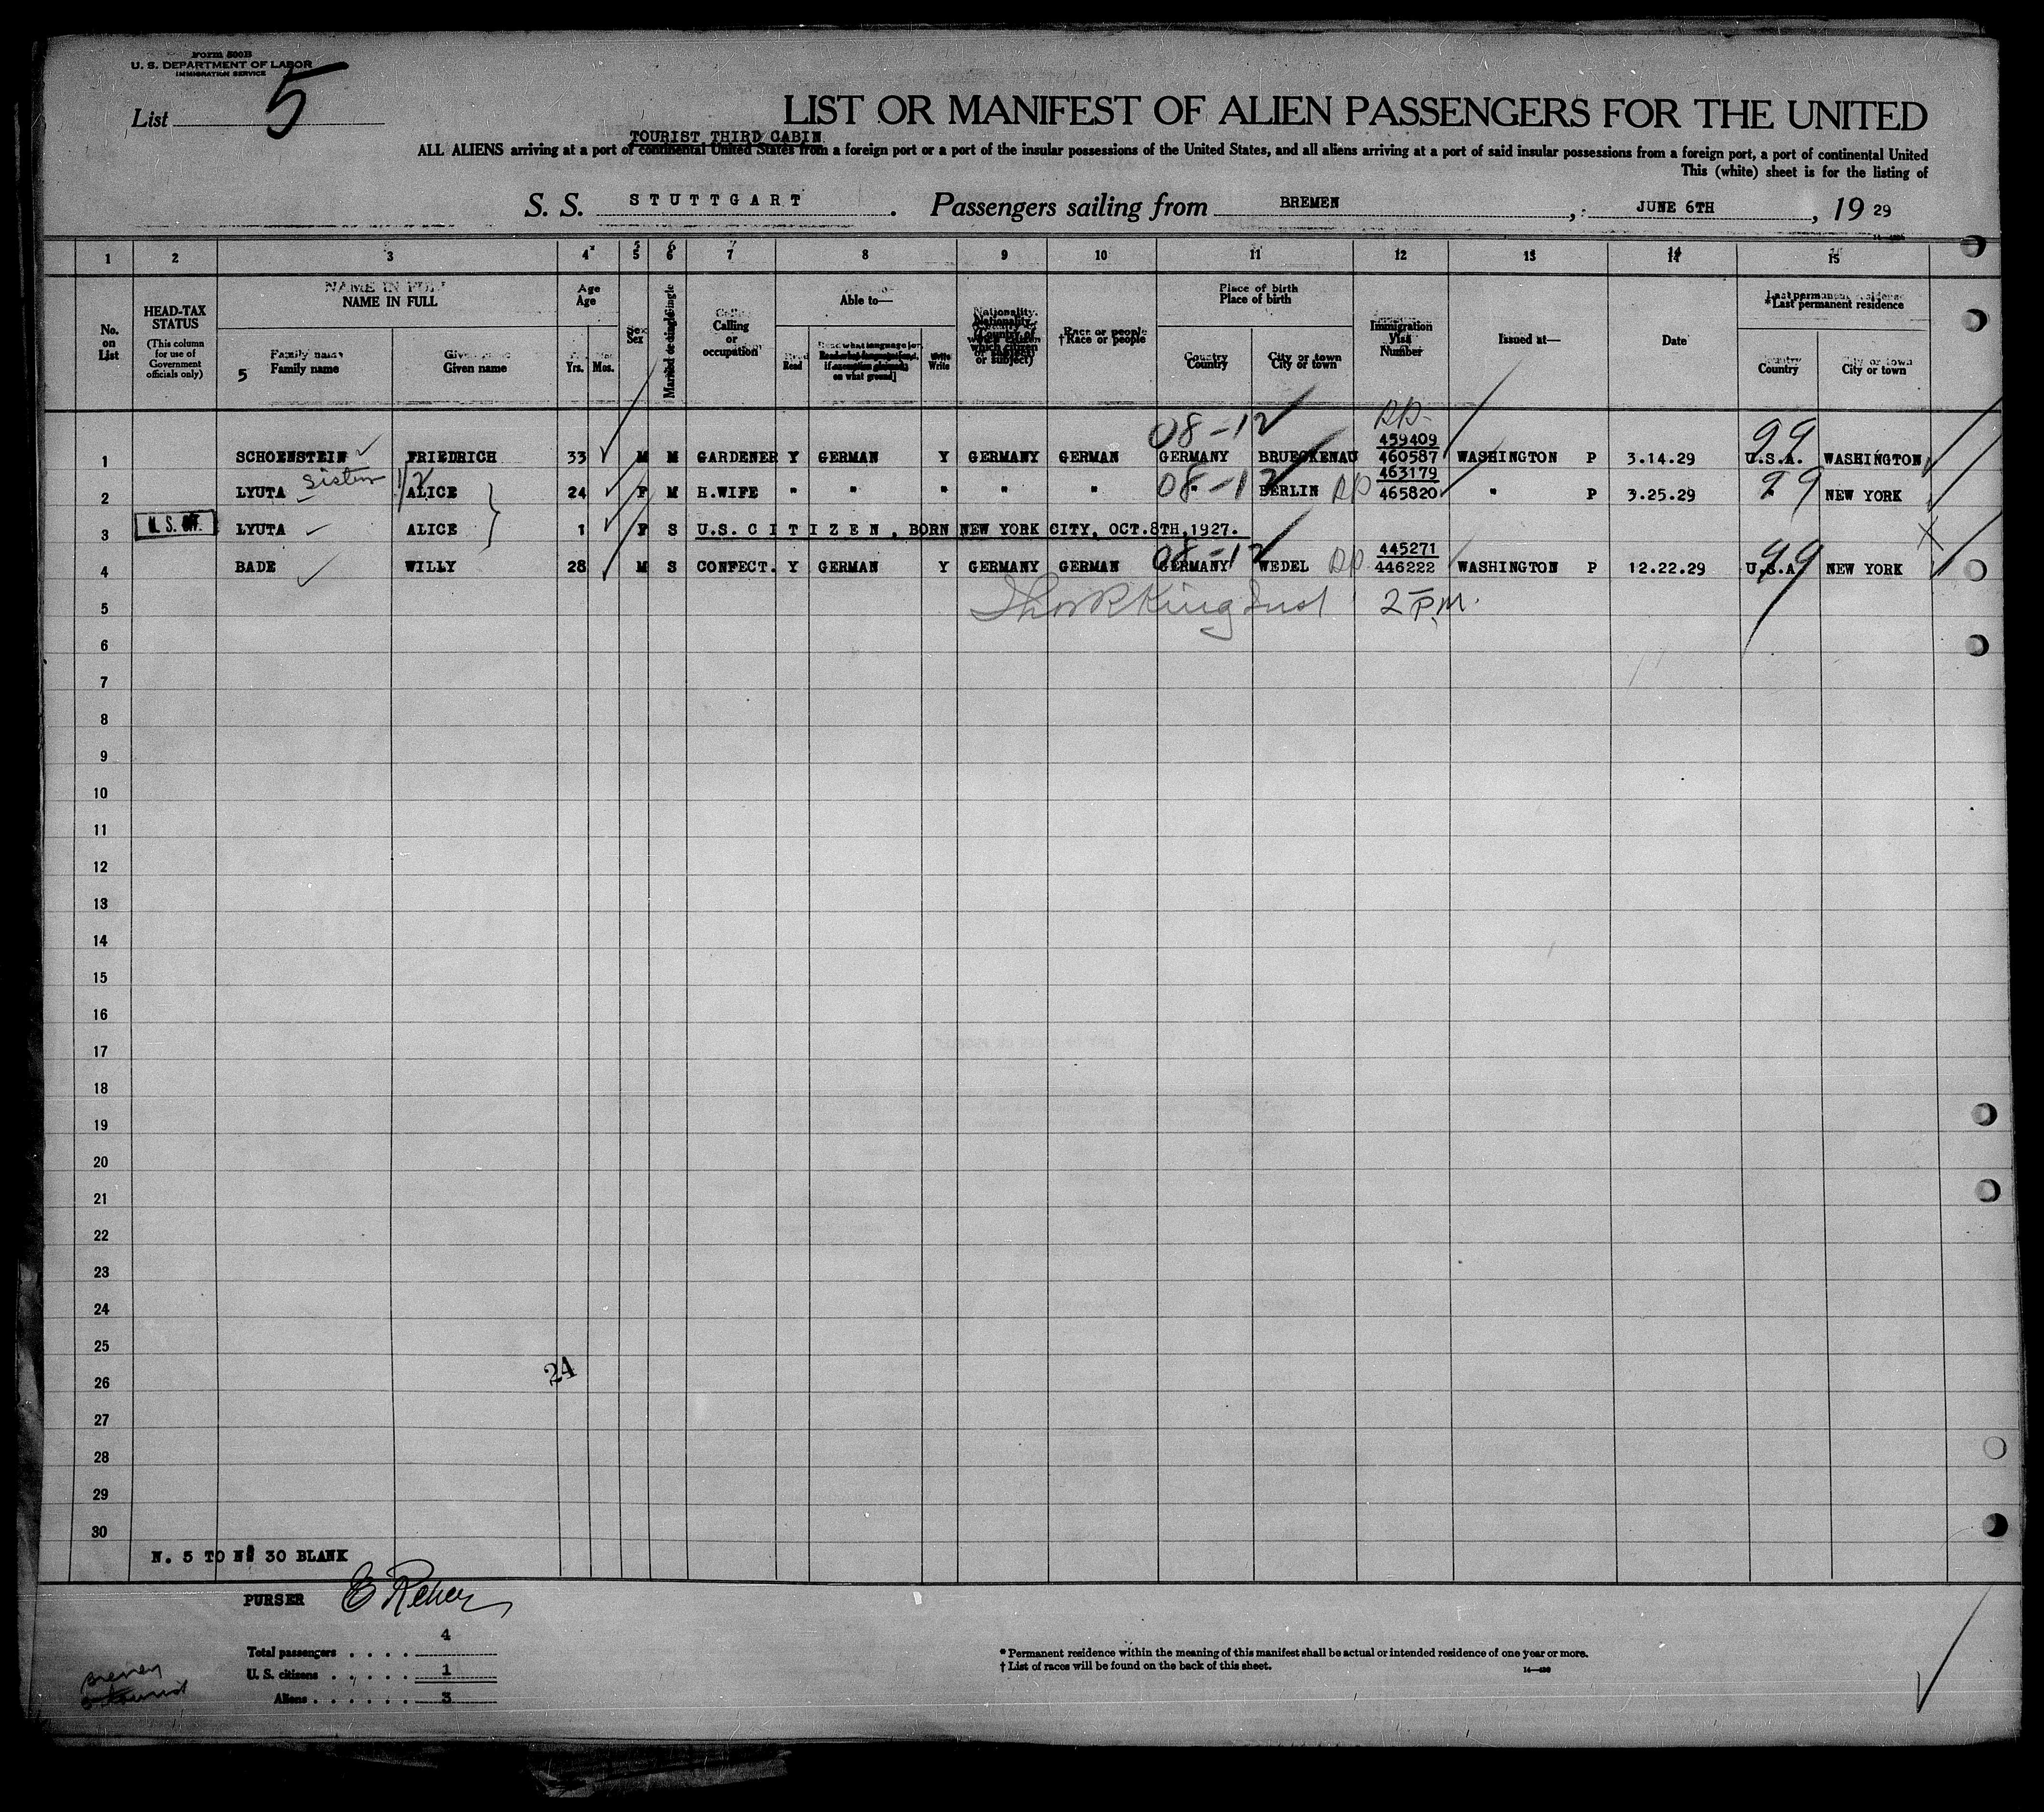 Form 500B
U. S. DEPARTMENT OF LABOR
IMMIGRATION SERVICE
List 5
LIST OR MANIFEST OF ALIEN PASSENGERS FOR THE UNITED
TOURIST THIRD CABIN
ALL ALIENS arriving at a port of continental United States from a foreign port or a port of the insular possessions of the United States, and all aliens arriving at a port of said insular possessions from a foreign port, a port of continental United
This (white) sheet is for the listing of
S. S. STUTTGART. Passengers sailing from BREMEN, JUNE 6TH, 19 29
1 2 3 4 5 6 7 8 9 10 11 12 13 14 15
No. on List
HEAD-TAX STATUS
(This column for use of Government officials only)
NAME IN FULL
Family name
Given name
5
Age
Yrs. Mos.
Sex
Calling or occupation
Able to—
Read
Write
†Race or people
Place of birth
Country
City or town
Immigration Visa Number
Issued at—
Date
*Last permanent residence
Country
City or town
08-12
99
1 SCHOENSTEIN FRIEDRICH 33 M M GARDENER Y GERMAN Y GERMANY GERMAN GERMANY BRUECKENAU 459409 460587 WASHINGTON P 3.14.29 U.S.A. WASHINGTON
sister 1/2
08-12
99
2 LYUTA ALICE 24 F M H.WIFE " " " " " " BERLIN 463179 465820 " P 3.25.29 " NEW YORK
3 LYUTA ALICE 1 F S U.S. CITIZEN, BORN NEW YORK CITY, OCT.8TH,1927.
08-12
99
4 BADE WILLY 28 M S CONFECT. Y GERMAN Y GERMANY GERMAN GERMANY WEDEL 445271 446222 WASHINGTON P 12.22.29 U.S.A. NEW YORK
5 2 P.M.
6
7
8
9
10
11
12
13
14
15
16
17
18
19
20
21
22
23
24
25
24
26
27
28
29
30
N. 5 TO N. 30 BLANK
PURSER
Total passengers . . . . 4
U. S. citizens . . . . . 1
Aliens . . . . . . 3
* Permanent residence within the meaning of this manifest shall be actual or intended residence of one year or more.
† List of races will be found on the back of this sheet.